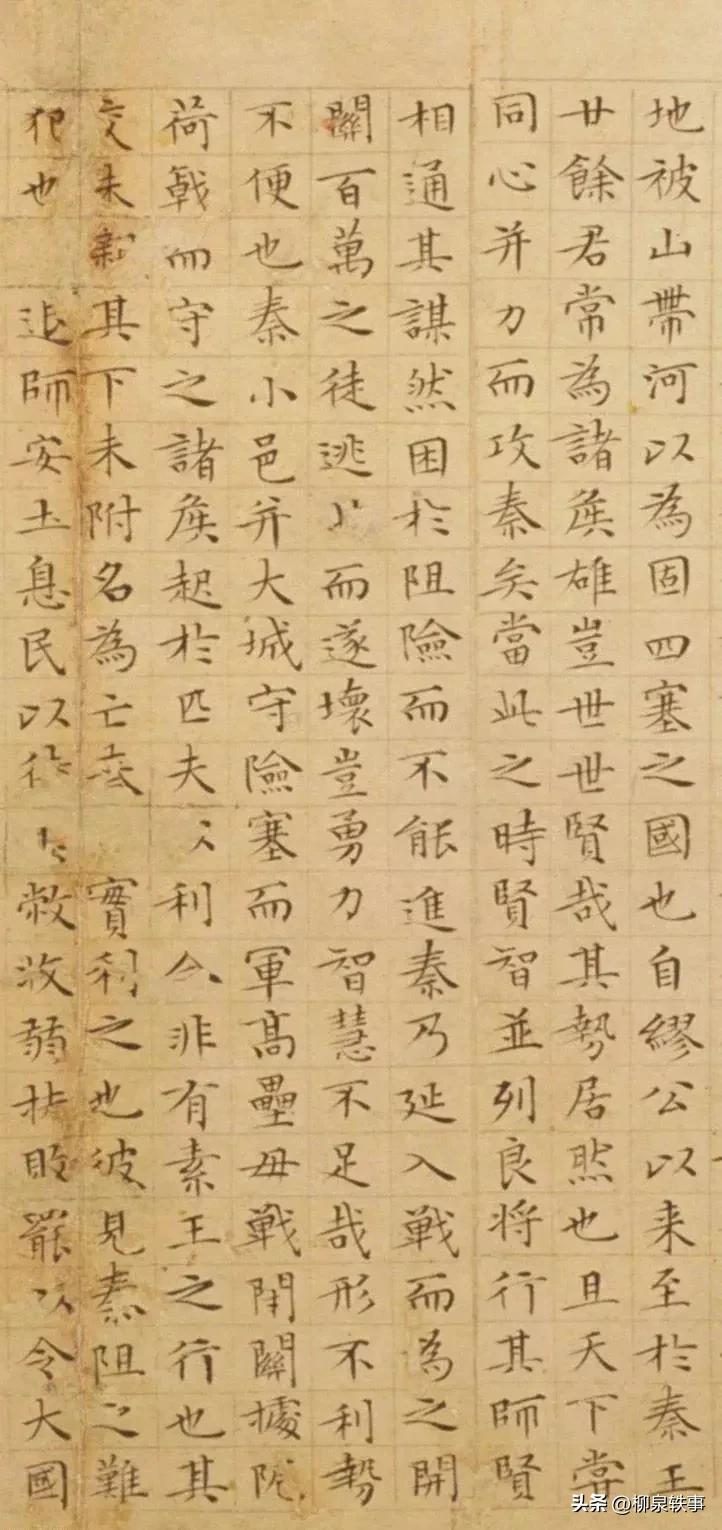 地被山帶河以為固四塞之國也自繆公以来至於秦王
廿餘君常為諸侯雄豈世世賢哉其勢居然也且天下常
同心并力而攻秦矣當此之時賢智並列良将行其師賢
相通其謀然困於阻險而不能進秦乃延入戰而為之開
關百萬之徒逃而遂壞豈勇力智慧不足哉形不利勢
不便也秦小邑并大城守險塞而軍高壘毋戰閉關據阨
荷戟而守之諸侯起於匹夫利合非有素王之行也其
交未親其下未附名為亡秦實利之也彼見秦阻之難
犯也退師安土息民以待敝收弱扶罷以令大國
头条 @柳泉轶事